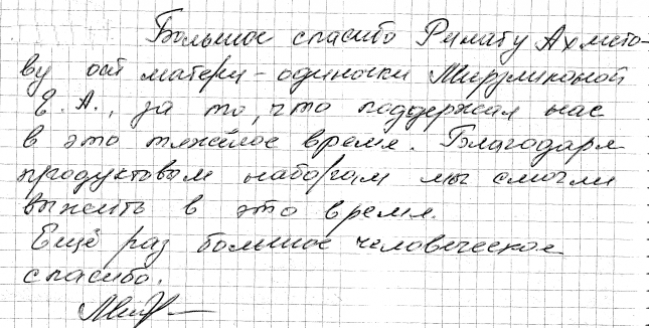 Большое спасибо Ринату Ахмето-
ву от матери-одиночки
Е. А., за то, что поддержал нас
в это тяжёлое время. Благодаря
продуктовым наборам мы смогли
выжить в это время.
Ещё раз большое человеческое
спасибо.